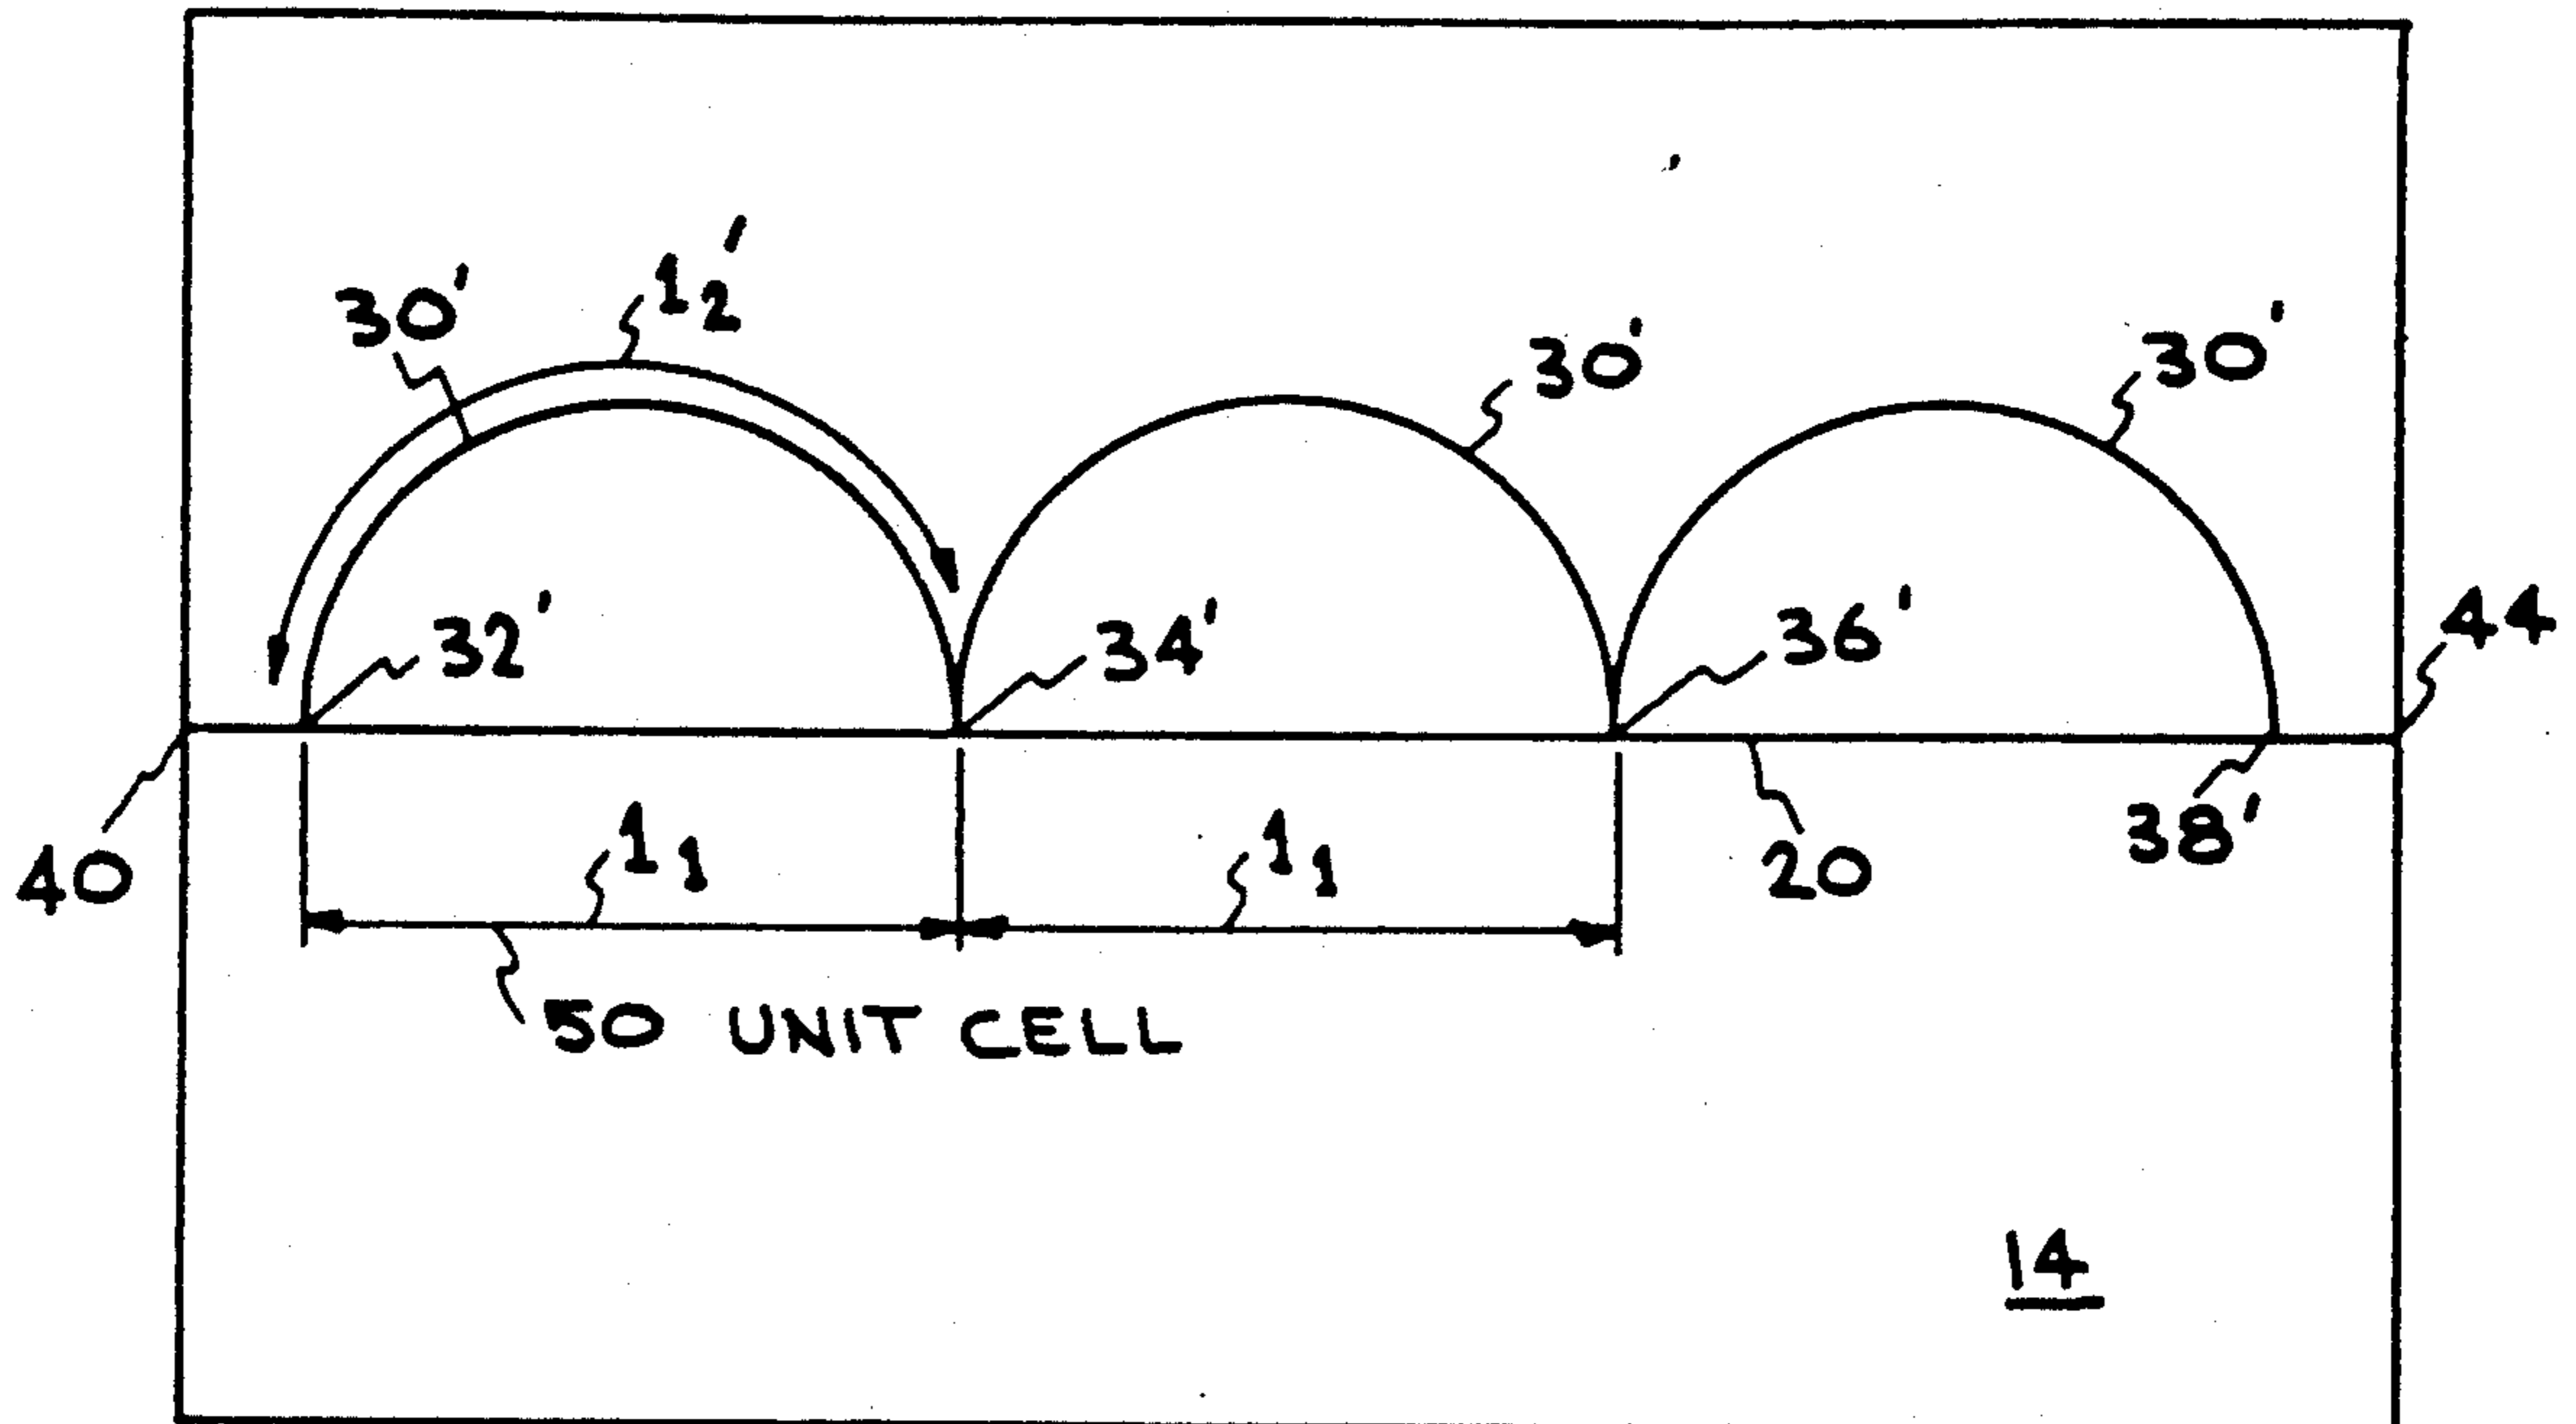 1₂'
30'
30'
30'
32'
34'
36'
44
40
1₁
1₁
20
38'
50 UNIT CELL
14